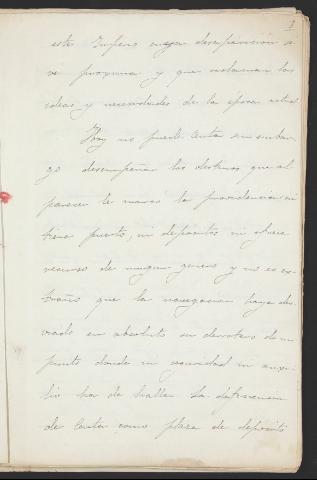 3
este Imperio cuya desaparición se
vé proxima y que reclaman las
ideas y necesidades de la época actual
Hoy no puede Ceuta sin embar-
go desempeñar los destinos que al
parecer le marcó la providencia ni
tiene puerto, ni depósitos ni ofrece
recursos de ningun genero y no es es-
traño que la navegacion haya des-
viado en absoluto su derrotero de un
punto donde ni seguridad ni auxi-
lio ha de hallar. La
de Ceuta como plaza de depósito